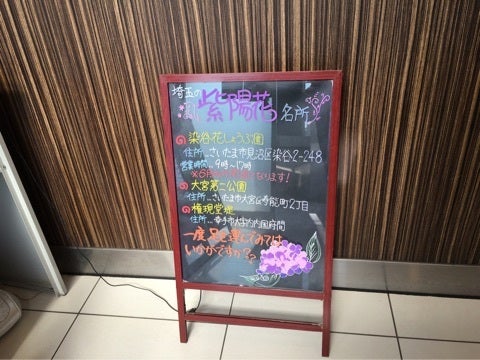 埼玉の
紫陽花 名所
染谷花しょうぶ園
住所…さいたま市見沼区染谷2-248
営業時間…9時〜17時
※6月 なります!
大宮第二公園
住所…さいたま市大宮区寿能町2丁目
権現堂堤
住所…幸手市大字内国府間
一度足を運んでみては
いかがですか??